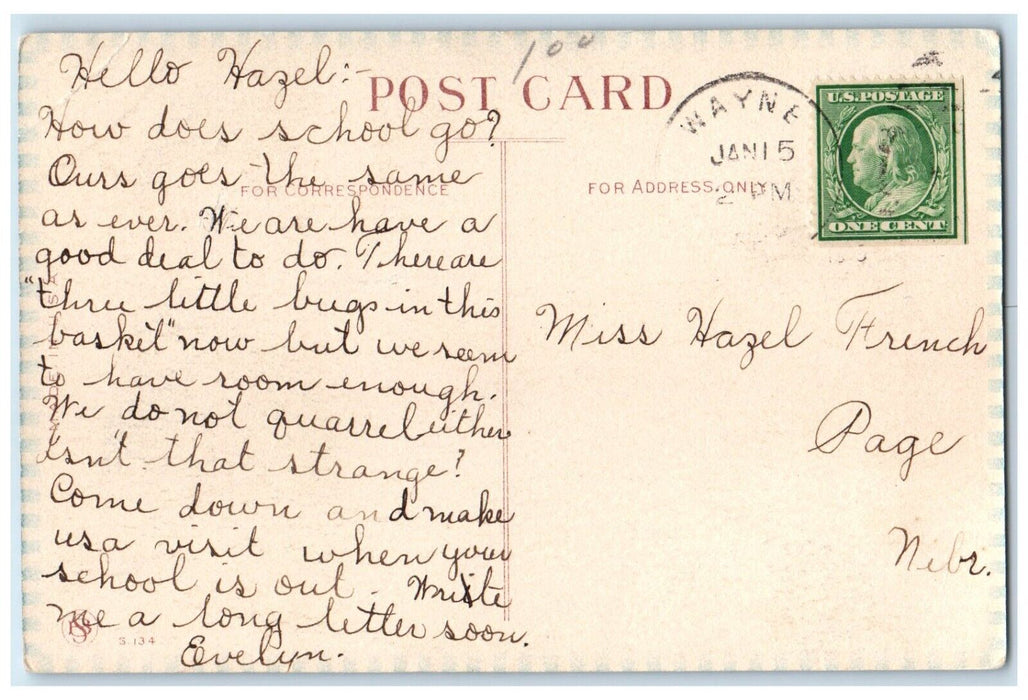 100
Hello Hazel:-
POST CARD
How does school go?
Ours goes the same
FOR CORRESPONDENCE
as ever. We are have a
good deal to do. There are
"three little bugs in this
basket" now but we seem
to have room enough.
We do not quarrel either
isn't that strange?
Come down and make
us a visit when your
school is out. Write
me a long letter soon.
Evelyn.
S. 134
WAYNE
JAN 15
2 PM
FOR ADDRESS ONLY
U.S. POSTAGE
ONE CENT
Miss Hazel French
Page
Nebr.